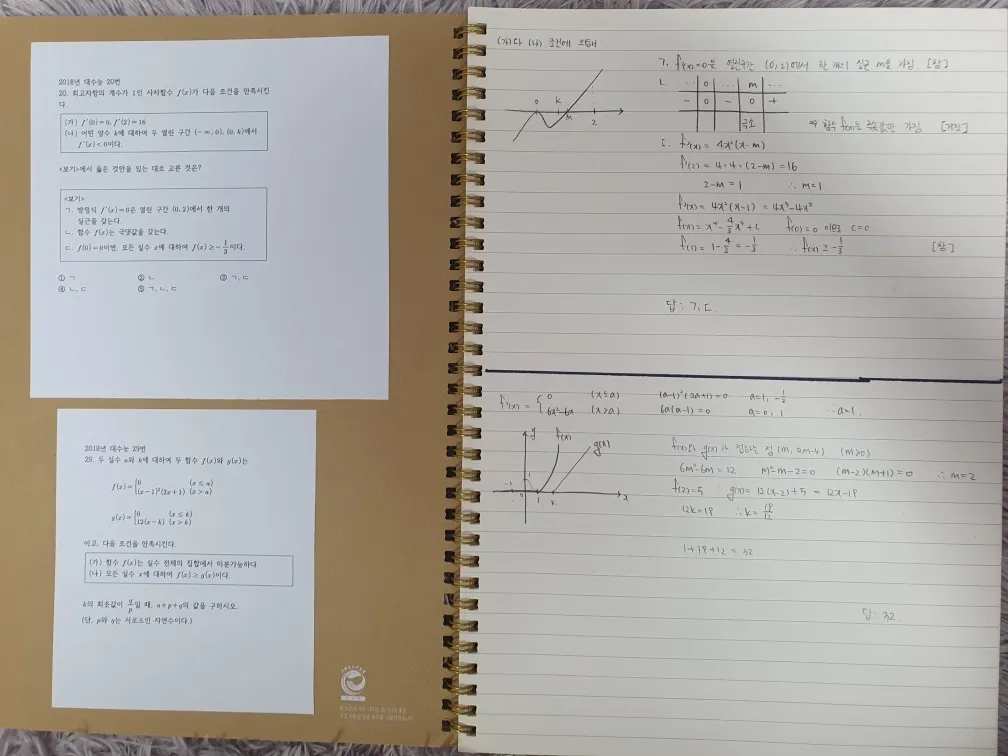 2018년 대수능 20번
20. 최고차항의 계수가 1인 사차함수 f(x)가 다음 조건을 만족시킨
다.
(가) f'(0)=0, f'(2)=16
(나) 어떤 양수 k에 대하여 두 열린 구간 (-∞, 0), (0, k)에서
f'(x)<0이다.
<보기>에서 옳은 것만을 있는 대로 고른 것은?
<보기>
ㄱ. 방정식 f'(x)=0은 열린구간 (0, 2)에서 한 개의
실근을 갖는다.
ㄴ. 함수 f(x)는 극댓값을 갖는다.
ㄷ. f(0)=0이면, 모든 실수 x에 대하여 f(x)≥-1/3이다.
① ㄱ ② ㄴ ③ ㄱ, ㄷ
④ ㄴ, ㄷ ⑤ ㄱ, ㄴ, ㄷ
2018년 대수능 29번
29. 두 실수 a와 k에 대하여 두 함수 f(x)와 g(x)는
f(x)={0 (x≤a)
(x-1)²(2x+1) (x>a)
g(x)={0 (x≤k)
12(x-k) (x>k)
이고, 다음 조건을 만족시킨다.
(가) 함수 f(x)는 실수 전체의 집합에서 미분가능하다.
(나) 모든 실수 x에 대하여 f(x)≥g(x)이다.
k의 최솟값이 q/p일 때, a+p+q의 값을 구하시오.
(단, p와 q는 서로소인 자연수이다.)
(가)와 (나) 조건에 의해
0 k m 2
ㄱ. f'(x)=0은 열린구간 (0,2)에서 한 개의 실근 m을 가짐. [참]
ㄴ. … 0 … m …
- 0 - 0 +
극소
[거짓]
ㄷ. f'(x) = 4x²(x-m)
f'(2) = 4·4·(2-m) = 16
2-m = 1 ∴ m=1
f'(x) = 4x²(x-1) = 4x³-4x²
f(x) = x⁴-4/3x³+C f(0)=0 이므로 C=0
f(1) = 1-4/3 = -1/3 ∴ f(x) ≥ -1/3 [참]
답 : ㄱ, ㄷ.
f'(x) = {0 (x≤a) (a-1)²(2a+1)=0 a=1, -1/2
6x²-6x (x>a) 6a(a-1)=0 a=0, 1 ∴ a=1.
y f(x) g(x)
-1 0 1 k x
f(x)와 g(x)가 접하는 점 (m, 12m-k) (m>0)
6m²-6m = 12 m²-m-2=0 (m-2)(m+1)=0 ∴ m=2
f(2)=5 g(x) = 12(x-2)+5 = 12x-19
12k=19 ∴ k=19/12
1+19+12 = 32
답 : 32